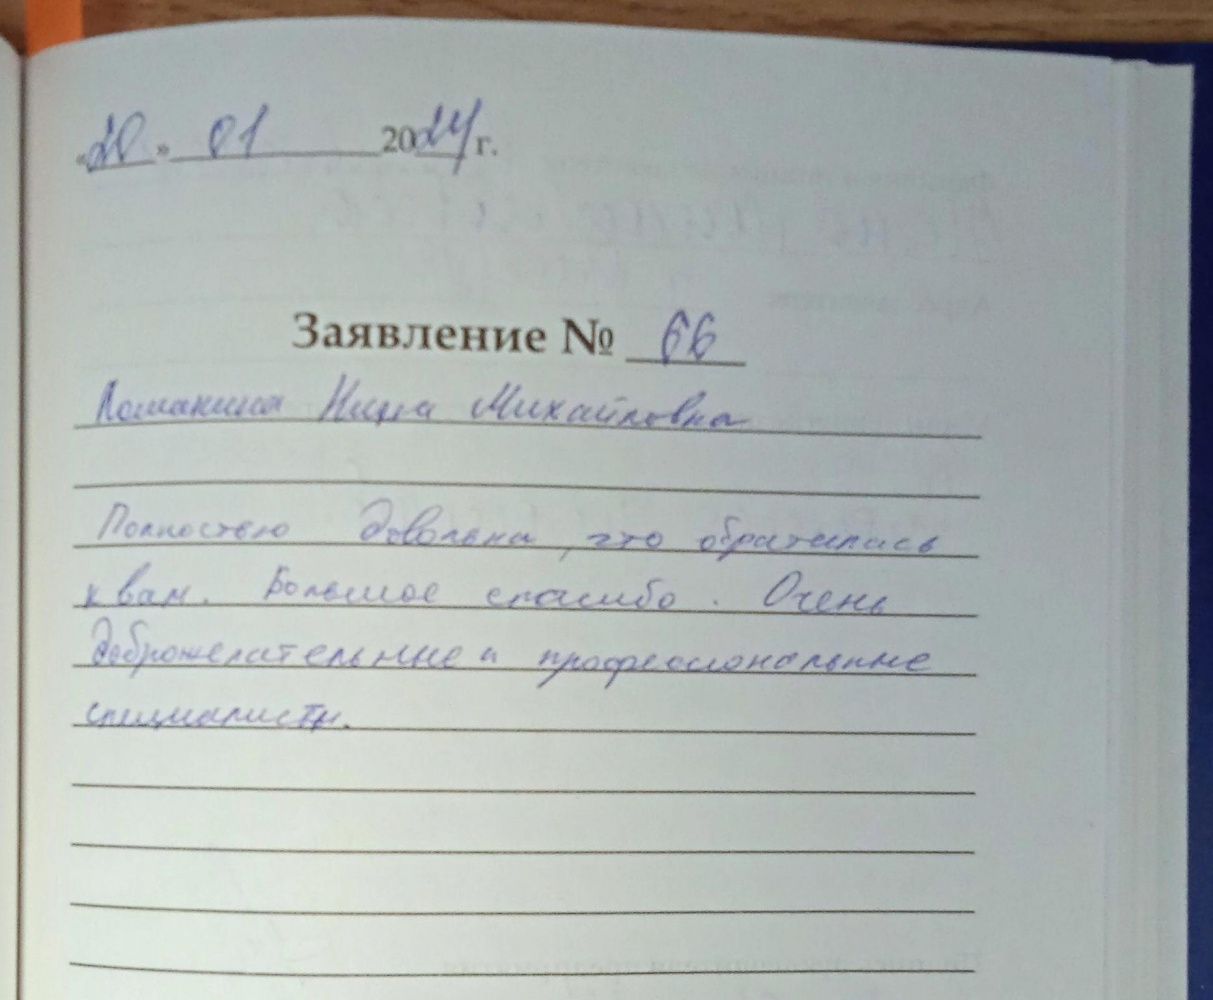 «20» 01 2024 г.
Заявление № 66
Ломакина Нина Михайловна
Полностью довольна, что обратилась
к вам. Большое спасибо. Очень
доброжелательные и профессиональные
специалисты.